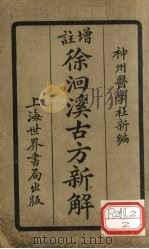 神州醫學社新編
增註
徐洄溪古方新解
上海世界書局出版
R2112
2